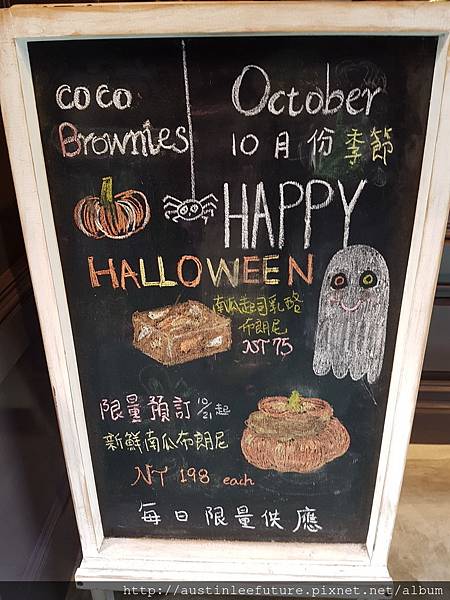 coco
Brownies
October
10月份季節
HAPPY
HALLOWEEN
南瓜起司乳酪
布朗尼
NT 75
限量預訂 10/21起
新鮮南瓜布朗尼
NT 198 each
每日限量供應
http://austinleefuture.pixnet.net/album